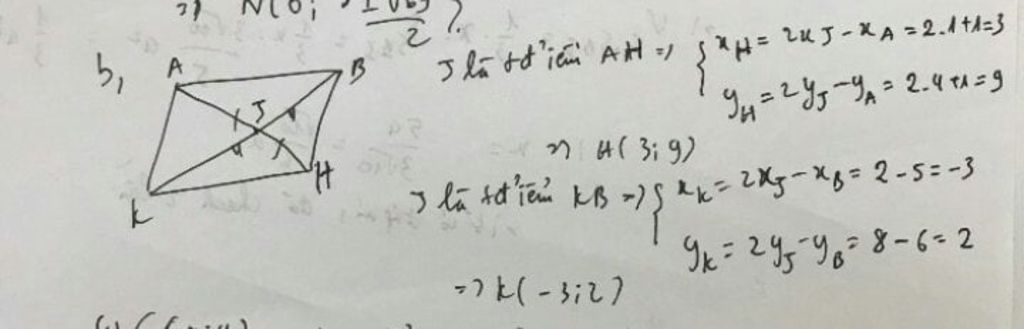 => N(0;
2
b,
A
B
J
K
H
J là tđ'iểm AH => { x_H = 2x_J - x_A = 2.1+1=3
y_H = 2y_J - y_A = 2.4+1=9
=> H(3;9)
J là tđ'iểm KB => { x_K = 2x_J - x_B = 2-5=-3
y_K = 2y_J - y_B = 8-6=2
=> K(-3;2)